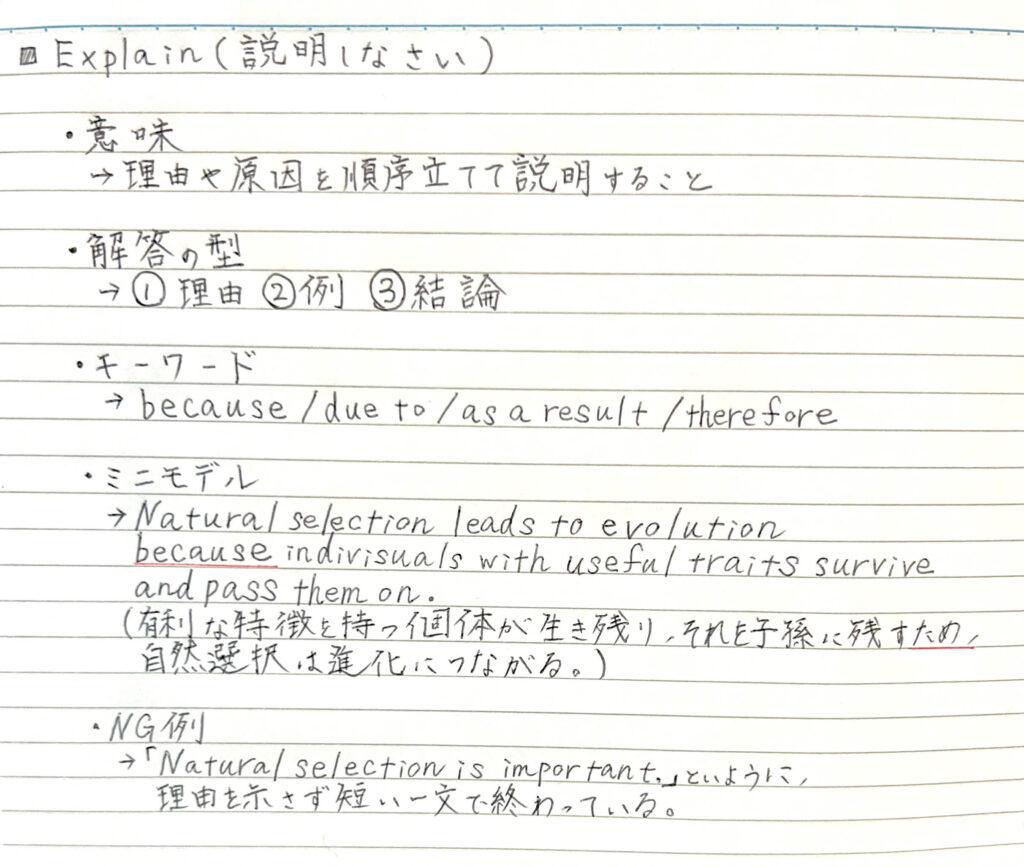 Explain(説明しなさい)
・意味
→理由や原因を順序立てて説明すること
・解答の型
→①理由 ②例 ③結論
・キーワード
→ because/due to/as a result/therefore
・ミニモデル
→ Natural selection leads to evolution
because indivisuals with useful traits survive
and pass them on.
(有利な特徴を持つ個体が生き残り、それを子孫に残すため、
自然選択は進化につながる。)
・NG例
→「Natural selection is important.」といように、
理由を示さず短い一文で終わっている。